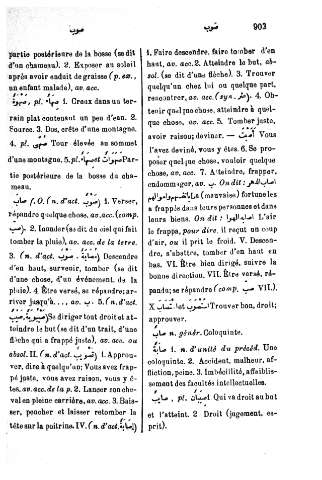 صوب
صوب
903
partie postérieure de la bosse (se dit
d'un chameau). 2. Exposer au soleil
après avoir enduit de graisse (p. ex.,
un enfant malade), av. acc.
pl. 1. Creux dans un ter-
rain plat contenant un peu d'eau. 2.
Source. 3. Dos, crête d'une montagne.
4. pl. Tour élevée au sommet
d'une montagne. 5. pl. Par-
tie postérieure de la bosse du cha-
meau.
صاب f. O. (n. d'act. صوب) 1. Verser,
répandre quelque chose, av. acc. (comp.
صب). 2. Inonder (se dit du ciel qui fait
tomber la pluie), av. acc. de la terre.
3. (n. d'act. صوب) Descendre
d'en haut, survenir, tomber (se dit
d'une chose, d'un événement, de la
pluie). 4. Être versé, se répandre; ar-
river jusqu'à..., av. ب. 5. (n. d'act.
Se diriger tout droit et at-
teindre le but (se dit d'un trait, d'une
flèche qui a frappé juste), av. acc. ou
absol. II. (n. d'act. تصويب) 1. Approu-
ver, dire à quelqu'un: Vous avez frap-
pé juste, vous avez raison, vous y ê-
tes, av. acc. de la p. 2. Lancer son che-
val en pleine carrière, av. acc. 3. Bais-
ser, pencher et laisser retomber la
tête sur la poitrine. IV. (n. d'act. إصابة)
1. Faire descendre, faire tomber d'en
haut, av. acc. 2. Atteindre le but, ab-
sol. (se dit d'une flèche). 3. Trouver
quelqu'un chez lui ou quelque part,
rencontrer, av. acc. (syn. ). 4. Ob-
tenir quelque chose, atteindre à quel-
que chose, av. acc. 5. Tomber juste,
avoir raison; deviner. — أصبت Vous
l'avez deviné, vous y êtes. 6. Se pro-
poser quelque chose, vouloir quelque
chose, av. acc. 7. Atteindre, frapper,
endommager, av. ب. On dit:
(mauvaise) fortune les
a frappés dans leurs personnes et dans
leurs biens. On dit: L'air
le frappa, pour dire, il reçut un coup
d'air, ou il prit le froid. V. Descen-
dre, s'abattre, tomber d'en haut en
bas. VI. Être bien dirigé, suivre la
bonne direction. VII. Être versé, ré-
pandu; se répandre (comp. صب VII.).
X Trouver bon, droit;
approuver.
صاب n. génér. Coloquinte.
صابة 1. n. d'unité du précéd. Une
coloquinte. 2. Accident, malheur, af-
fliction, peine. 3. Imbécillité, affaiblis-
sement des facultés intellectuelles.
pl. Qui va droit au but
et l'atteint. 2 Droit (jugement, es-
prit).